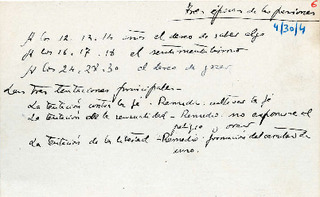 Tres épocas de las pasiones
6
4/30/4
A los 12. 13. 14 años el deseo de saber algo
A los 16. 17. 18 el sentimentalismo
A los 24, 27. 30 el deseo de
Las tres tentaciones principales -
La tentación contra la fé. Remedio. cultivar la fé
La tentación de la sensualidad - Remedio. no exponerse al
peligro y orar
La tentación de la libertad - Remedio formación del carácter de
uno.